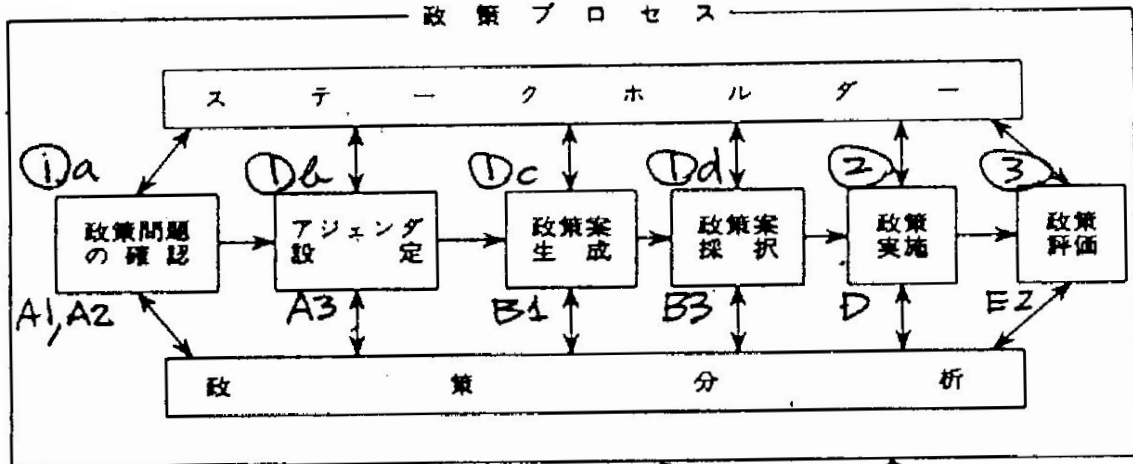 政策プロセス
ステークホルダー
①a
①b
①c
①d
②
③
政策問題
の確認
アジェンダ
設定
政策案
生成
政策案
採択
政策
実施
政策
評価
A1,A2
A3
B1
B3
D
E2
政策分析